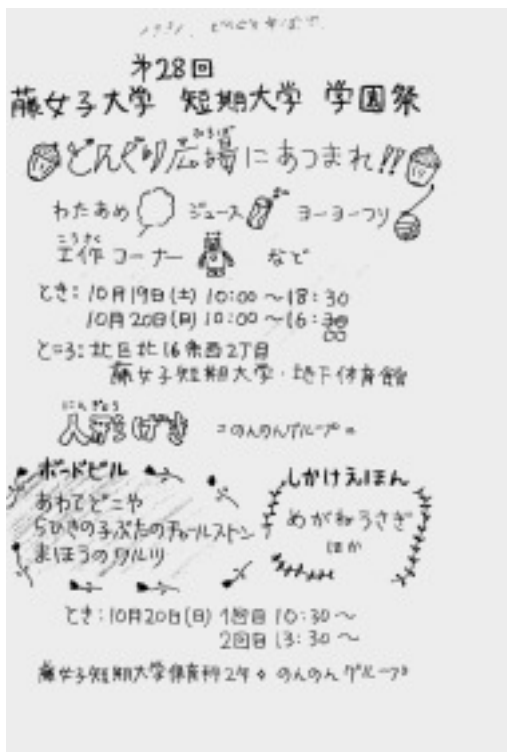 第28回
藤女子大学 短期大学 学園祭
どんぐり広場にあつまれ!!
ひろば
わたあめ ジュース ヨーヨーつり
こうさく
工作コーナー など
とき:10月19日(土) 10:00〜18:30
10月20日(日) 10:00〜16:30
00
ところ:北区北16条西2丁目
藤女子短期大学・地下体育館
にんぎょう
人形げき =のんのんグループ=
ボードビル
あわてどこや
5ひきの子ぶたのチャールストン
まほうのワルツ
しかけえほん
めがねうさぎ
ほか
とき:10月20日(日) 1回目 10:30〜
2回目 13:30〜
藤女子短期大学保育科2年 のんのんグループ